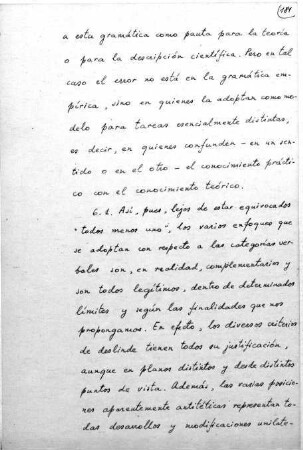 181
a esta gramática como pauta para la teoría
o para la descripción científica. Pero en tal
caso el error no está en la gramática em-
pírica, sino en quienes la adoptan como mo-
delo para tareas esencialmente distintas,
es decir, en quienes confunden – en un sen-
tido o en el otro – el conocimiento prácti-
co con el conocimiento teórico.
6.1. Así, pues, lejos de estar equivocados
"todos menos uno", los varios enfoques que
se adoptan con respecto a las categorías ver-
bales son, en realidad, complementarios y
son todos legítimos, dentro de determinados
límites y según las finalidades que nos
propongamos. En efecto, los diversos criterios
de deslinde tienen todos su justificación,
aunque en planos distintos y desde distintos
puntos de vista. Además, las varias posicio-
nes aparentemente antitéticas representan to-
das desarrollos y modificaciones unilate-